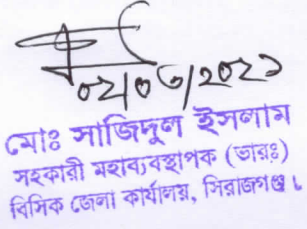 ০২/০৩/২০২১
মোঃ সাজিদুল ইসলাম
সহকারী মহাব্যবস্থাপক (ভারঃ)
বিসিক জেলা কার্যালয়, সিরাজগঞ্জ।